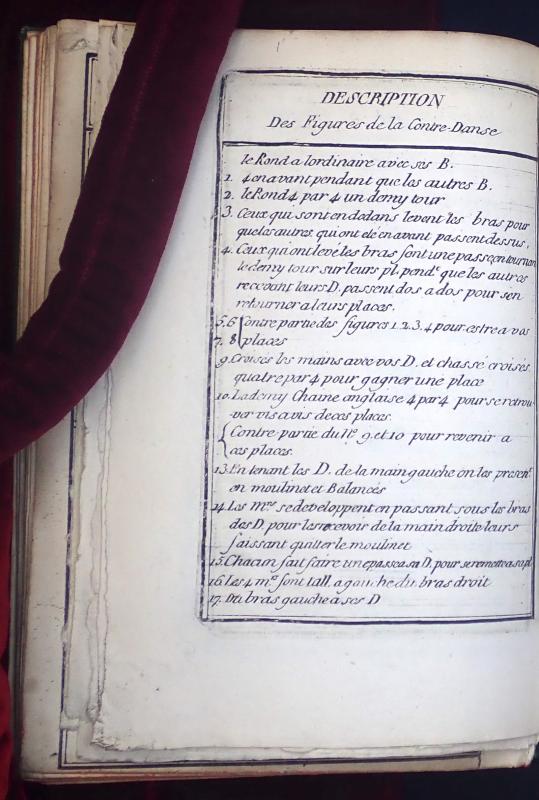 DESCRIPTION
Des Figures de la Contre-Danse
le Rond a lordinaire avec ses B.
1. 4 en avant pendant que les autres B.
2. le Rond 4 par 4 un demy tour
3. Ceux qui sont en dedans levent les bras pour
que les autres qui ont eté en avant passent dessus,
4. Ceux qui ont levé les bras font une passe en tournan
le demy tour sur leurs pl. pend.t que les autres
recevant leurs D. passent dos a dos pour s'en
retourner a leurs places.
5. 6 Contre partie des figures 1. 2. 3. 4 pour estre a vos
7. 8 places
9. Croisés les mains avec vos D. et chassé croisés
quatre par 4 pour gagner une place
10. La demy Chaine anglaise 4 par 4 pour se retrou
ver vis a vis de ces places.
Contre-partie du N.o 9. et 10 pour revenir a
ces places.
13. En tenant les D. de la main gauche on les present.
en moulinet et Balancés
14. Les M.rs se developpent en passant sous les bras
des D. pour les recevoir de la main droite leurs
faissant quitter le moulinet
15. Chacun fait faire une passe a sa D. pour se remettre a sa pl.
16. Les 4 m.rs font l'all. a gauche du bras droit
17. bras gauche à ses D